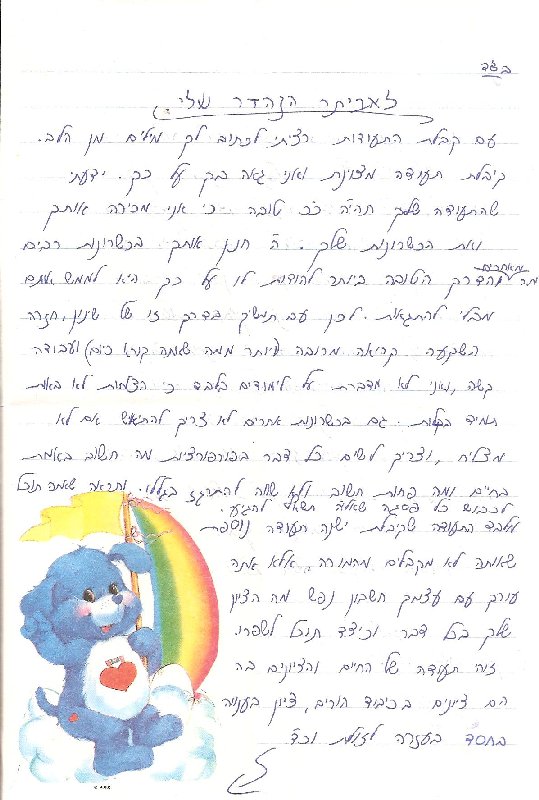 בס"ד
לאביתר הנהדר שלי.
עם קבלת התעודות רציתי לכתוב לך מילים מן הלב.
קיבלת תעודה מצוינת ואני גאה בך על כך. ידעתי
שהתעודה שלך תהיה כ"כ טובה כי אני מכירה אותך
ואת הכשרונות שלך. ה' חונן אותך בכשרונות רבים
מאחרים
והדרך הטובה ביותר להודות לו על כך היא לממש אותם
מבלי להתגאות. לכן עם תמשיך בדרך זו של שינון, חזרה
השקעה קריאה מרובה (יותר ממה שאתה קורא כיום) ועבודה
קשה, ואני לא מדברת על לימודים בלבד כי הצלחות לא באות
תמיד בקלות. גם בכשרונות אחרים לא צריך להתיאש אם לא
מצליח, וצריך לשים כל דבר בפורפורציות מה חשוב באמת
בחיים ומה פחות חשוב ולא שווה להתרגז בגללו. ותראה שאתה תוכל
לכבוש כל פסגה שאליה תשאף להגיע.
מלבד התעודה שקיבלת ישנה תעודה נוספת
שאותה לא מקבלים מהמורה אלא אתה
עורך עם עצמך חשבון נפש מה הציון
שלך בכל דבר וכיצד תוכל לשפרו.
זוהי תעודה של החיים והציונים בה
הם ציונים בכיבוד הורים, ציון בענווה
בחסד בעזרה לזולת וכד'